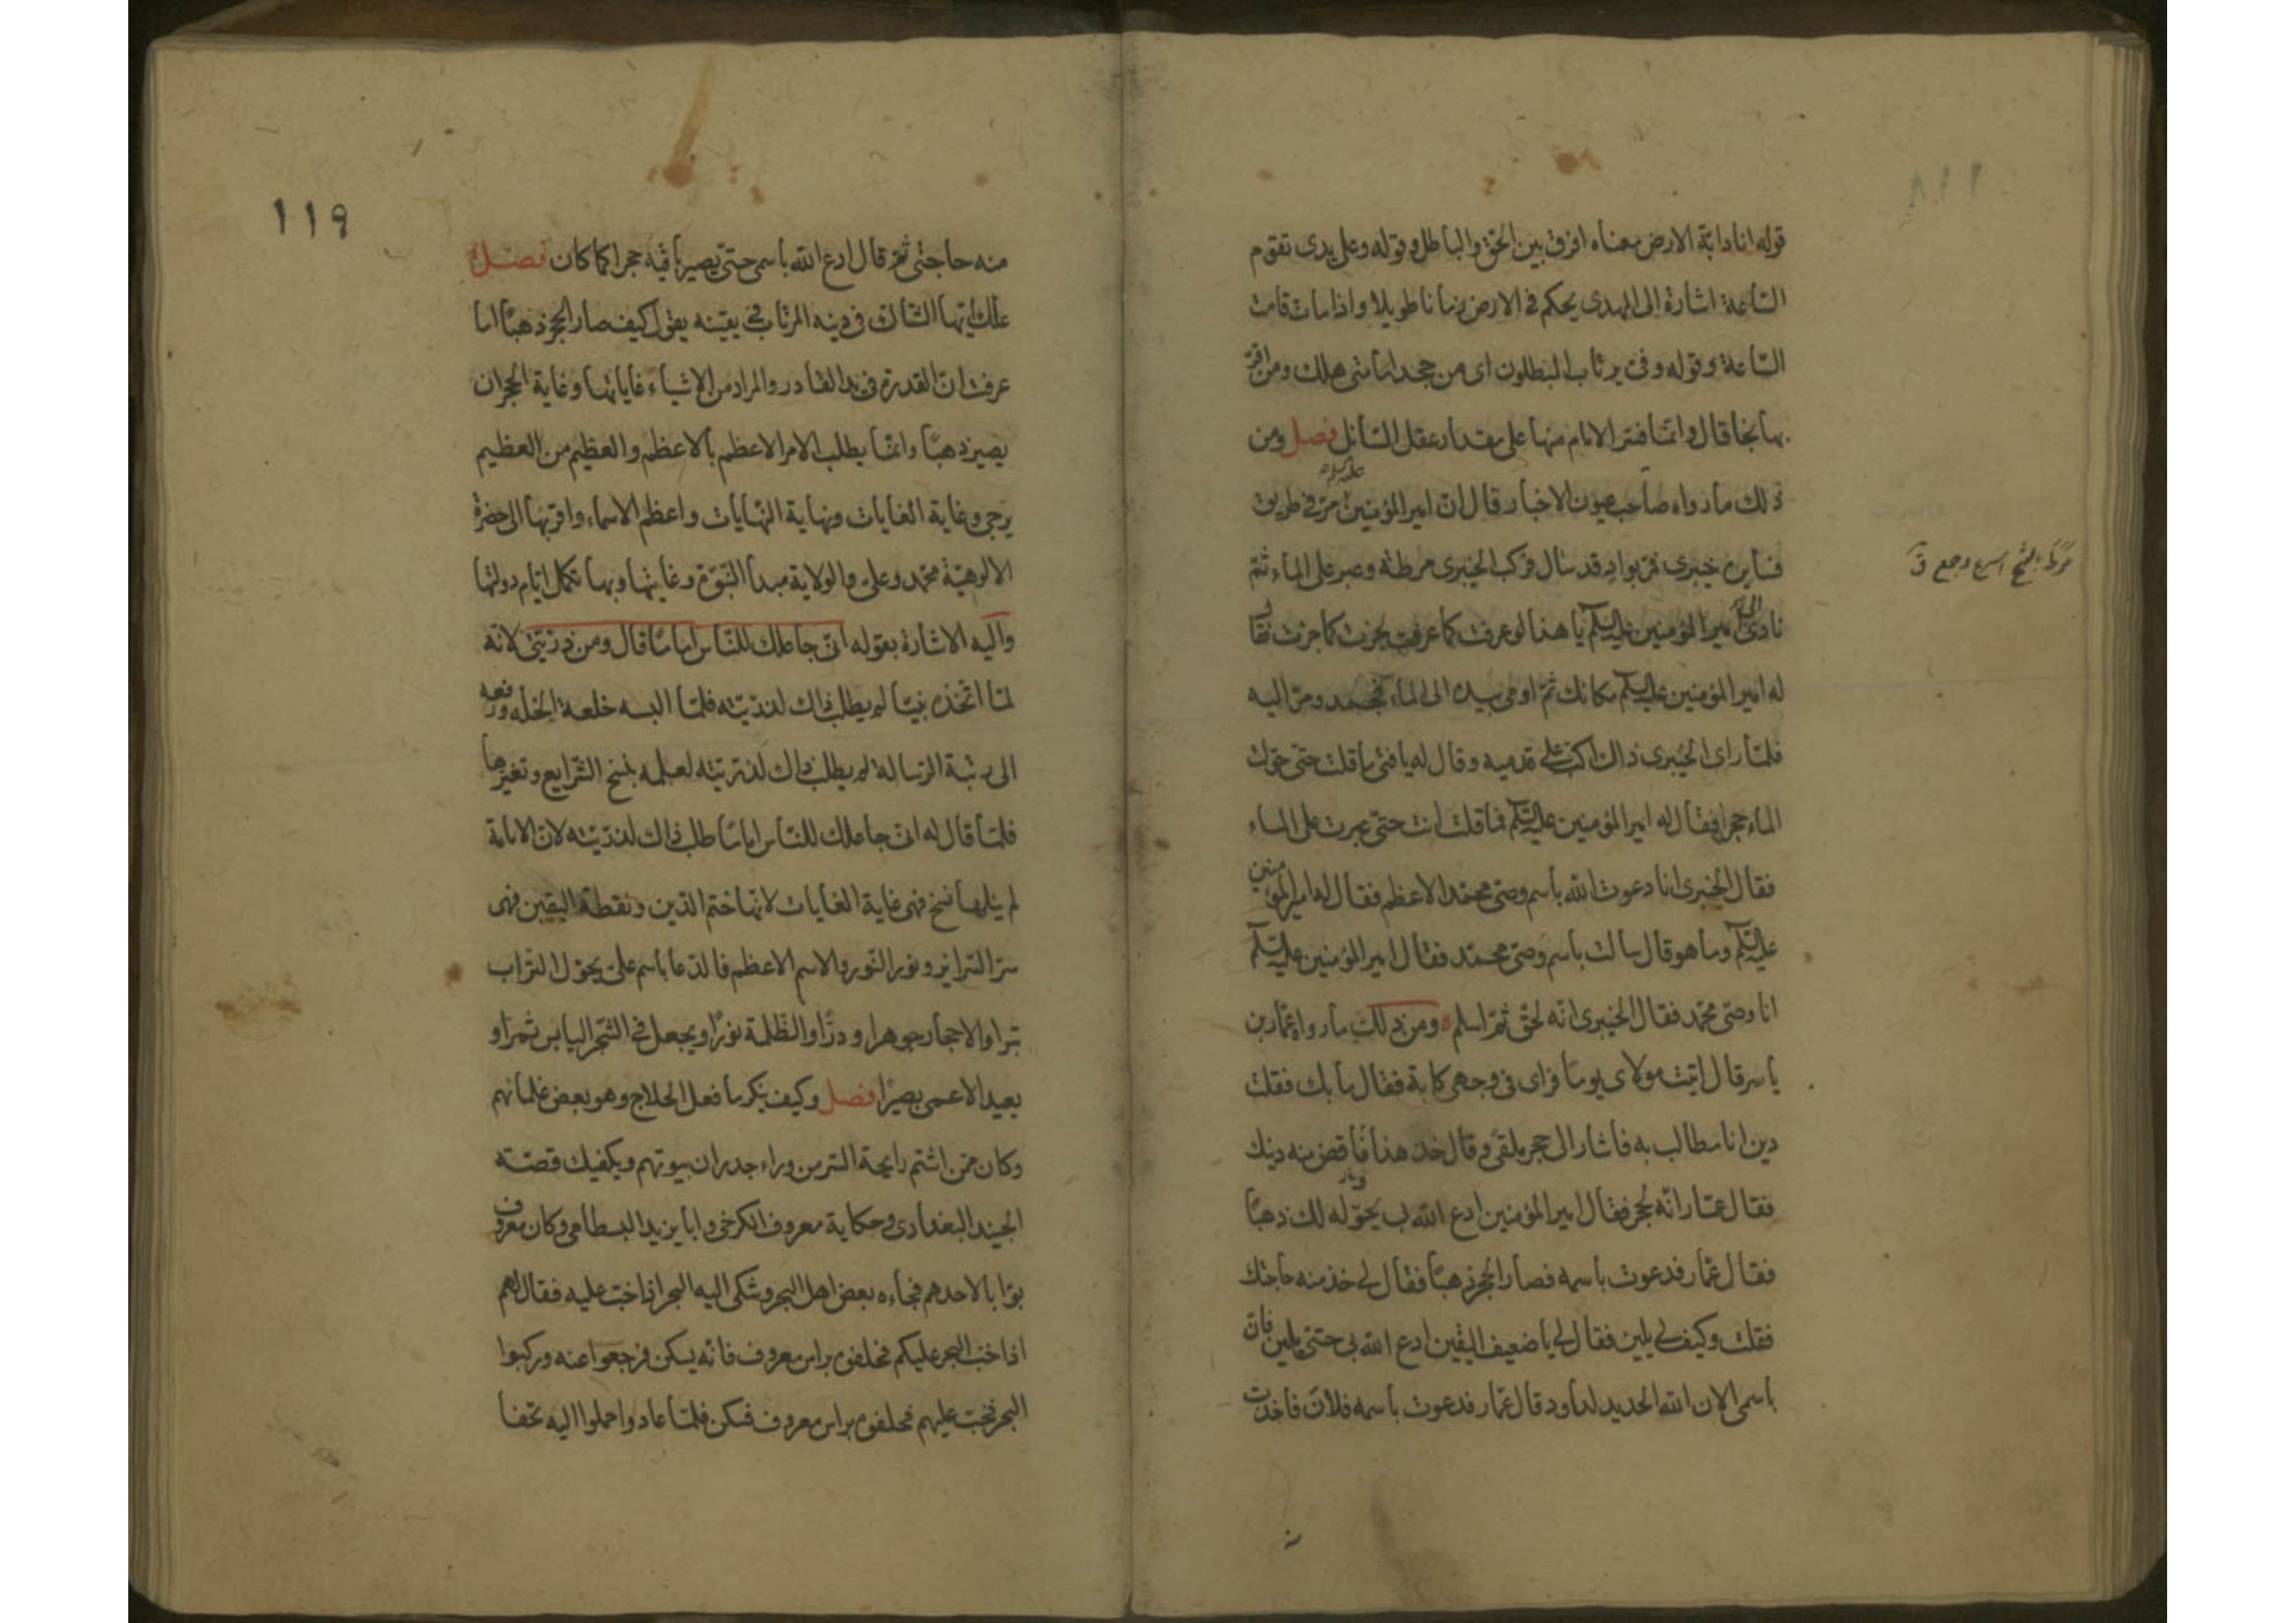 ١١٨
قوله انا دابّة الارض معناه افرق بين الحقّ والباطل وقوله وعلى يدى تقوم
السّاعة اشارة الى المهدى يحكم فى الارض زمانا طويلا واذا مات قامت
السّاعة وقوله وفىّ يرتاب المبطلون اى من جحد امامتى هلك ومن اقرّ
بها نجا قال وانّما فسّر الامام منها على مقدار عقل السّائل فصل ومن
ذلك ما رواه صاحب عيون الاخبار قال انّ امير المؤمنين عليه السلام مرّ فى طريق
فسايره خيبرى فمرّ بواد قد سال فركب الخيبرى مرطه وعبر على الماء ثمّ
مَرَطَ بفتح اسرع وجمع ق
نادى الى امير المؤمنين عليه السلم يا هذا لو عرفت كما عرفت لجزت كما جزت فقال
له امير المؤمنين عليه السلم مكانك ثمّ اومى بيده الى الماء فجمد ومرّ اليه
فلمّا راى الخيبرى ذاك اكبّ على قدميه وقال له يا فتى ما قلت حتى حوّلت
الماء حجرا فقال له امير المؤمنين عليه السّلم فما قلت انت حتّى عبرت على الماء
فقال الخيبرى انا دعوت الله باسم وصىّ محمّد الاعظم فقال له امير المؤمنين
عليه السّلم وما هو قال سالت باسم وصىّ محمّد فقال امير المؤمنين عليه السّلم
انا وصىّ محمّد فقال الخيبرى انّه لحقّ ثمّ اسلم ٥ ومن ذلك ما رواه عمّار بن
ياسر قال اتيت مولاى يومًا فراى فى وجهى كابة فقال ما بك فقلت
دين انا مطالب به فاشار الى حجر ملقى وقال خذ هذا فاقض منه دينك
فقال عمّار انّه لحجر فقال امير المؤمنين ادع الله بى يحوّله لك ذهبًا
فقال عمّار فدعوت باسمه فصار الحجر ذهبًا فقال لى خذ منه حاجتك
فقلت وكيف لى يلين فقال لى يا ضعيف اليقين ادع الله بى حتى يلين فانّ
باسمى الان الله الحديد لداود قال عمّار فدعوت باسمه فلان فاخذت
١١٩
منه حاجتى ثمّ قال ادع الله باسمى حتى يصير باقيه حجرا كما كان فصل
علك ايّها الشّاك فى دينه المرتاب فى يقينه يقول كيف صار الحجر ذهبًا اما
عرفت انّ القدرة فى يد القادر والمراد من الاشياء غاياتها وغاية الحجر ان
يصير ذهبًا وانّما يطلب الامر الاعظم بالاعظم والعظيم من العظيم
يرجى وغاية الغايات ونهاية النّهايات واعظم الاسماء واقربها الى حضرة
الالوهيّة محمّد وعلى والولاية مبدأ النّبوّة وغايتها وبها تكمل ايّام دولتها
واليه الاشارة بقوله انّى جاعلك للنّاس امامًا قال ومن ذرّيتى لانّه
لمّا اتّخذه نبيّا لم يطلب ذاك لذرّيّته فلمّا البسه خلعة الخلّة ورفعه
الى رتبة الرّسالة لم يطلب ذاك لذرّيّته لعلمه بنسخ الشّرايع وتغيّرها
فلمّا قال له انّى جاعلك للنّاس امامًا طلب ذاك لذرّيّته لانّ الامامة
لم ينلها نسخ فهى غاية الغايات لانّها ختم الدّين ونقطة اليقين فهى
سرّ السّراير ونور النّور والاسم الاعظم فالدّعا باسم علىّ يحوّل التّراب
تبرا والاحجار جوهرا ودرًّا والظّلمة نورًا ويجعل فى الشّجر اليابس ثمرا و
يعيد الاعمى بصيرًا فصل وكيف ينكر ما فعل الحلاج وهو بعض غلمانهم
وكان ممّن اشتم رايحة السّر من وراء جدران بيوتهم ويكفيك قصّته
الجنيد البغدادى وحكاية معروف الكرخى وابا يزيد البسطامى وكان معروف
بوّابا لاحدهم فجاءه بعض اهل البحر وشكى اليه البحر اذا خبّ عليه فقال لهم
اذا خبّ البحر عليكم فحلّفوه براس معروف فانّه يسكن فرجعوا عنه وركبوا
البحر فخبّ عليهم فحلّفوه براس معروف فسكن فلمّا عادوا حملوا اليه تحفا